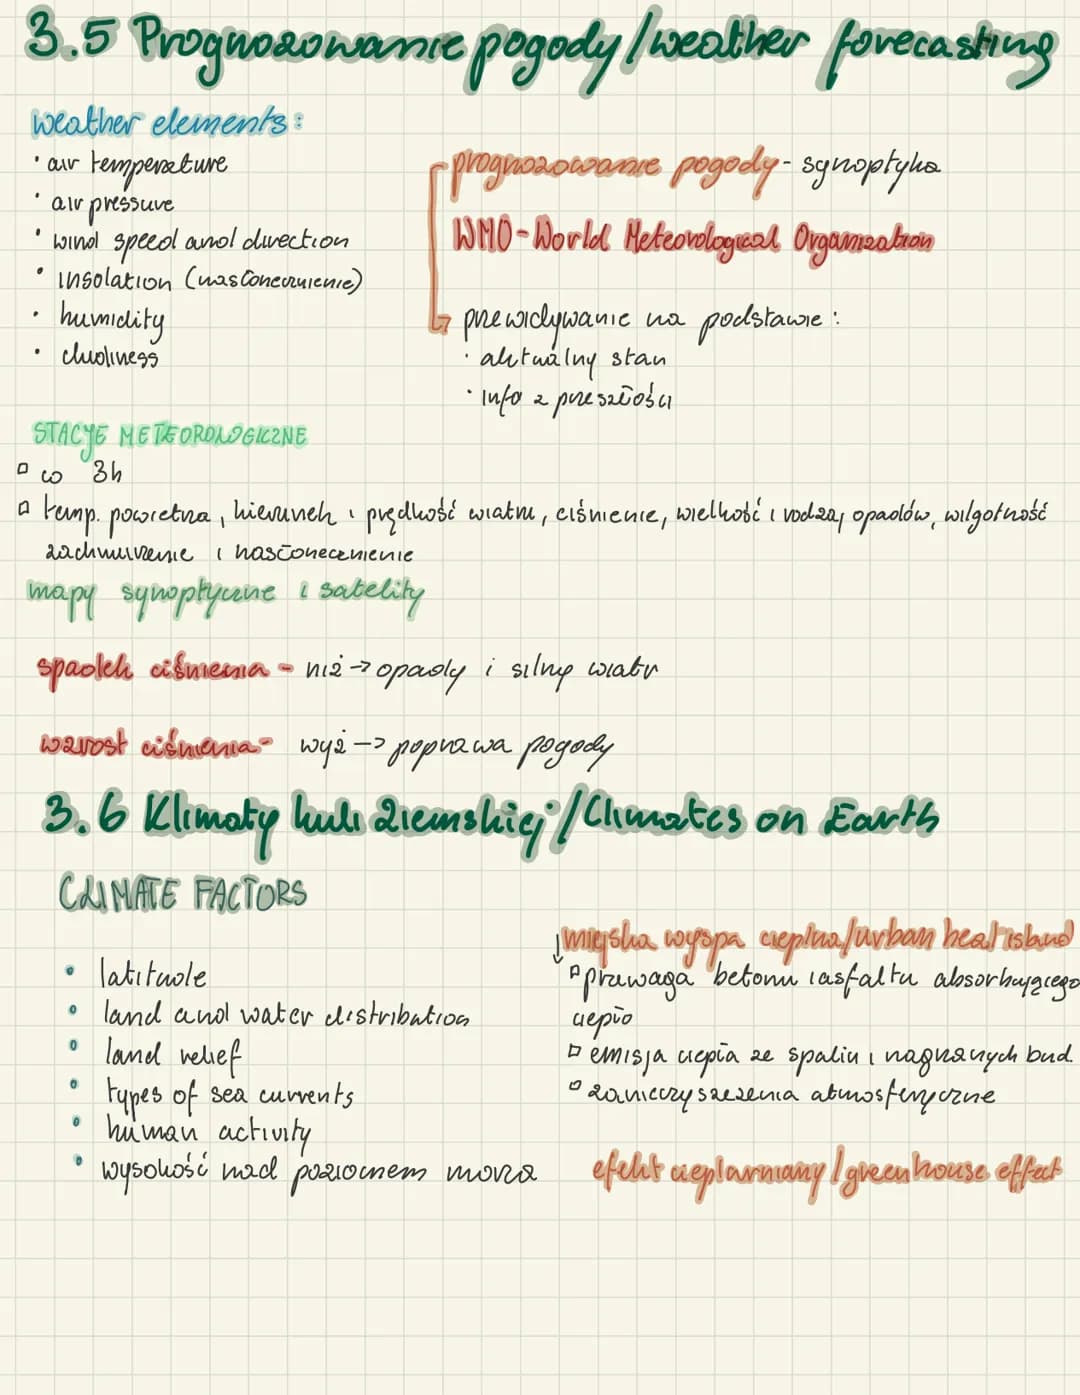 3.5 Prognozowanie pogody/weather forecasting
weather elements:
• air temperature
• air pressure
• wind speed and direction
• insolation (nasłonecznienie)
• humidity
• cludiness
prognozowanie pogody - synoptyka
WMO - World Meteorological Organization
przewidywanie na podstawie:
• aktualny stan
• info z przeszłości
STACJE METEOROLOGICZNE
▫ co 3h
▫ temp. powietrza, kierunek i prędkość wiatru, ciśnienie, wielkość i rodzaj opadów, wilgotność
zachmurzenie i nasłonecznienie
mapy synoptyczne i satelity
spadek ciśnienia - niż → opady i silny wiatr
wzrost ciśnienia - wyż → poprawa pogody
3.6 Klimaty kuli ziemskiej/Climates on Earth
CLIMATE FACTORS
• latitude
• land and water distribution
• land relief
• types of sea currents
• human activity
• wysokość nad poziomem morza
↓ miejska wyspa ciepłna/urban heat island
▫ przewaga betonu i asfaltu absorbującego
ciepło
▫ emisja ciepła ze spalin i nagrzanych bud.
▫ zanieczyszczenia atmosferyczne
efekt cieplarniany/greenhouse effect